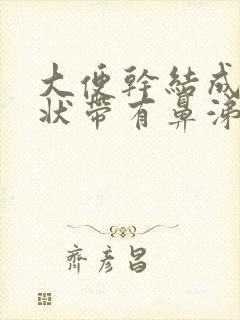 大便幹結成
狀帶有鼻涕
齊彦昌